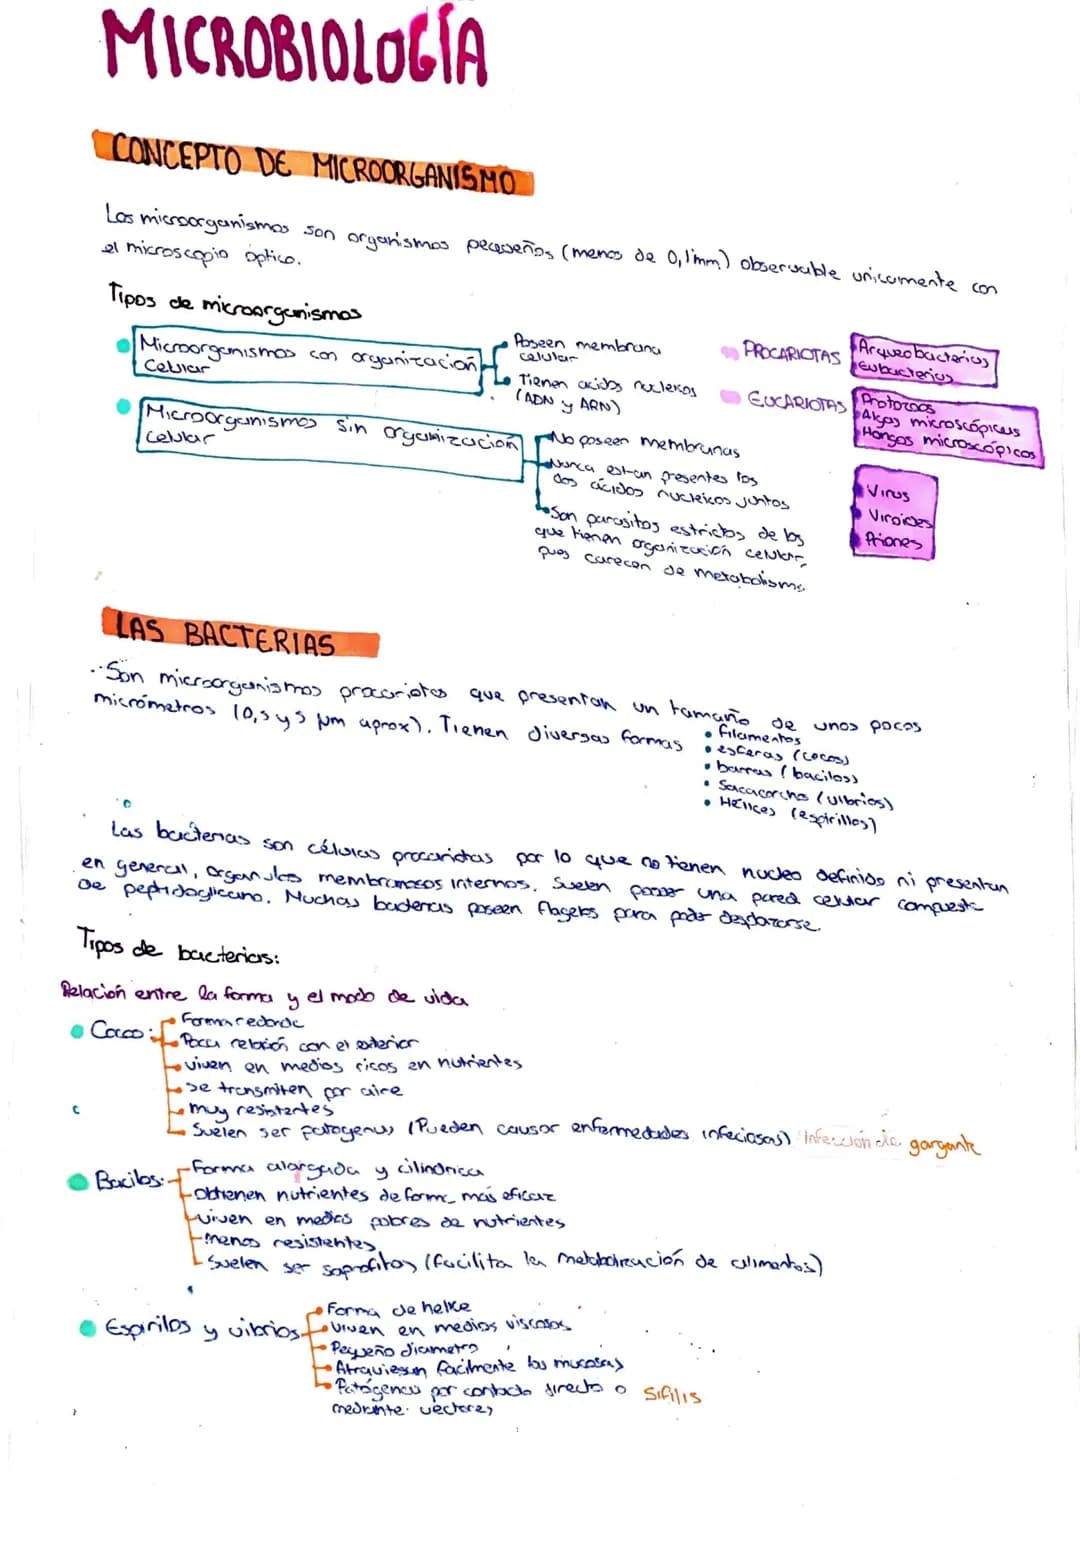 MICROBIOLOGÍA
CONCEPTO DE MICROORGANISMO
Los microorganismos son organismos pequeños (menos de 0,1mm) observable unicamente con
el microscopio óptico.
Tipos de microorganismos
Microorganismos con organización
celular
Poseen membrana
celular
Tienen acidos nucleicos
(ADN y ARN)
PROCARIOTAS
Arqueobacterias
Eubacterias
EUCARIOTAS
Protozoos
Algas microscópicas
Hongos microscópicos
Microorganismos sin organización
celular
No poseen membranas
Nunca estan presentes los
dos ácidos nucleicos juntos
Son parasitos estrictos de los
que tienen organización celular,
pues carecen de metabolismo
Virus
Viroides
Priones
LAS BACTERIAS
Son microorganismos procariotas que presentan un tamaño de unos pocos
micrómetros (0,5 y 5 µm aprox). Tienen diversas formas
• filamentos
• esferas (cocos)
• barras (bacilos)
• Sacacorchos (vibrios)
• Hélices (espirillos)
Las bacterias son células procariotas por lo que no tienen nucleo definido ni presentan
en general, organulos membranosos internos. Suelen poseer una pared celular compuesta
de peptidoglicano. Muchas bacterias poseen flagelos para poder desplazarse.
Tipos de bacterias:
Relación entre la forma y el modo de vida
Cocos:
Forma redonda
Poca relación con el exterior
viven en medios ricos en nutrientes
se transmiten por aire
muy resistentes
Suelen ser patogenos (Pueden causar enfermedades infeciosas) Infección de garganta
Bacilos:
Forma alargada y cilindrica
Obtienen nutrientes de forma más eficaz
viven en medios pobres de nutrientes
menos resistentes
Suelen ser saprofitos (facilita la metabolización de alimentos)
Espirilos y vibrios
Forma de helice
viven en medios viscosos
Pequeño diametro
Atraviesan facilmente las mucosas
Patógenos por contacto directo o
mediante vectores
SIFILIS